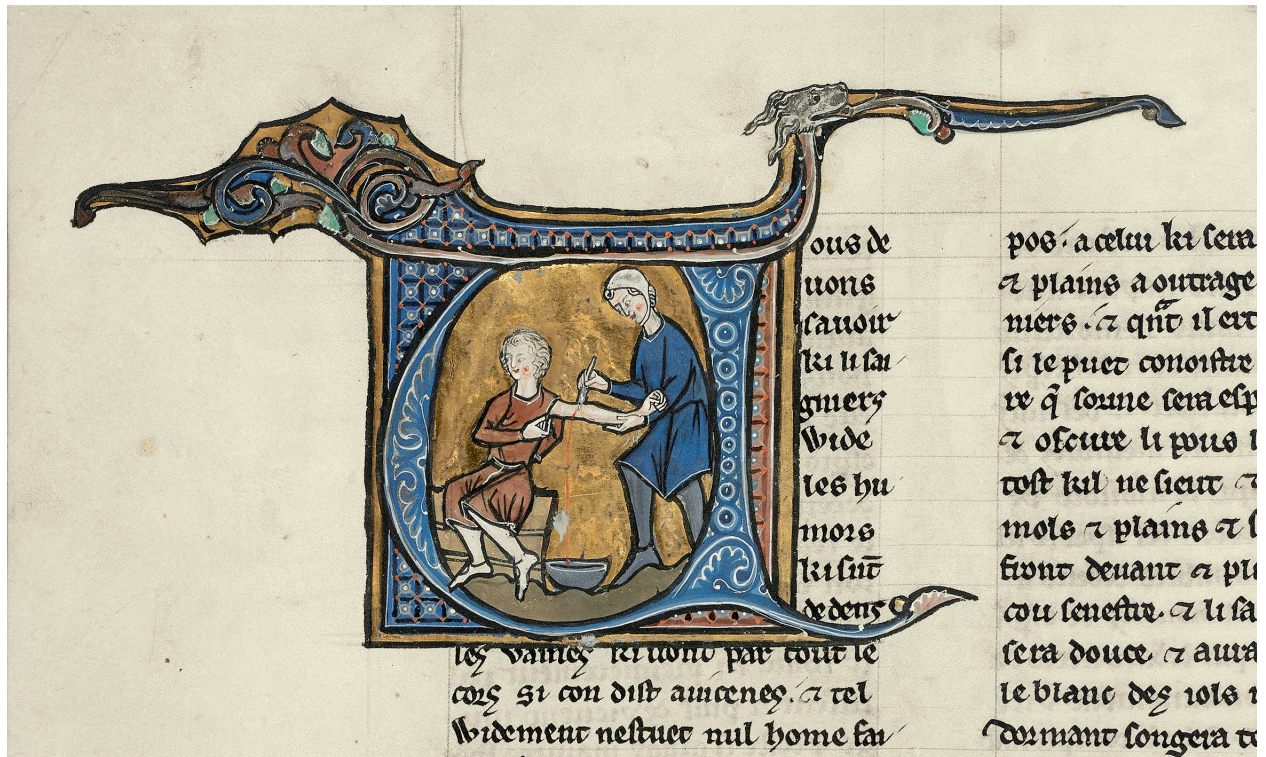 ous de
uons
sauoir
ki li sai
gniers
Wide
les hu
mors
ki sūt
dedens
les vaines ki uont par tout le
cors si con dist auicenes. ⁊ tel
Widement nestuet nul home fai
pos. a celui ki sera
⁊ plains a outrage
niers. ⁊ qnt il ert
si le puet conoistre
re q̄ sorme sera
⁊ oscure li pous
tost kil ne sieut ⁊
mols ⁊ plains ⁊
front deuant ⁊
cou senestre. ⁊ li sa
sera douce ⁊ aura
le blanc des iols
dormant songera